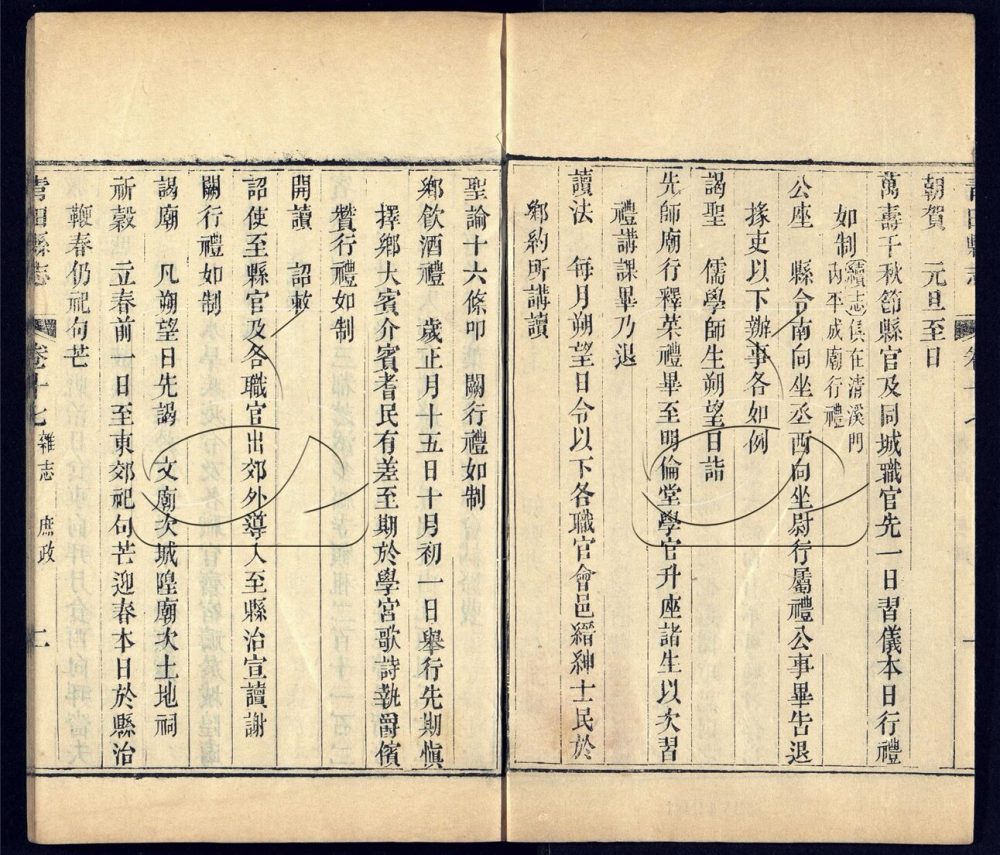 朝賀　元旦至日
萬壽千秋節縣官及同城職官先一日習儀本日行禮
如制續志俱在清溪門
內平成廟行禮
公座　縣令南向坐丞西向坐尉行屬禮公事畢吿退
掾吏以下辦事各如例
謁聖　儒學師生朔望日詣
先師廟行釋菜禮畢至明倫堂學官升座諸生以次習
禮講課畢乃退
讀法　每月朔望日令以下各職官會邑縉紳士民於
鄉約所講讀
聖諭十六條叩　闕行禮如制
鄉飲酒禮　歲正月十五日十月初一日舉行先期愼
擇鄉大賓介賓耆民有差至期於學宮歌詩執爵儐
贊行禮如制
開讀　詔敕
詔使至縣官及各職官出郊外導入至縣治宣讀謝
闕行禮如制
謁廟　凡朔望日先謁　文廟次城隍廟次土地祠
祈穀　立春前一日至東郊祀句芒迎春本日於縣治
鞭春仍祀句芒
靑田縣志　卷十七　雜志　庶政　二